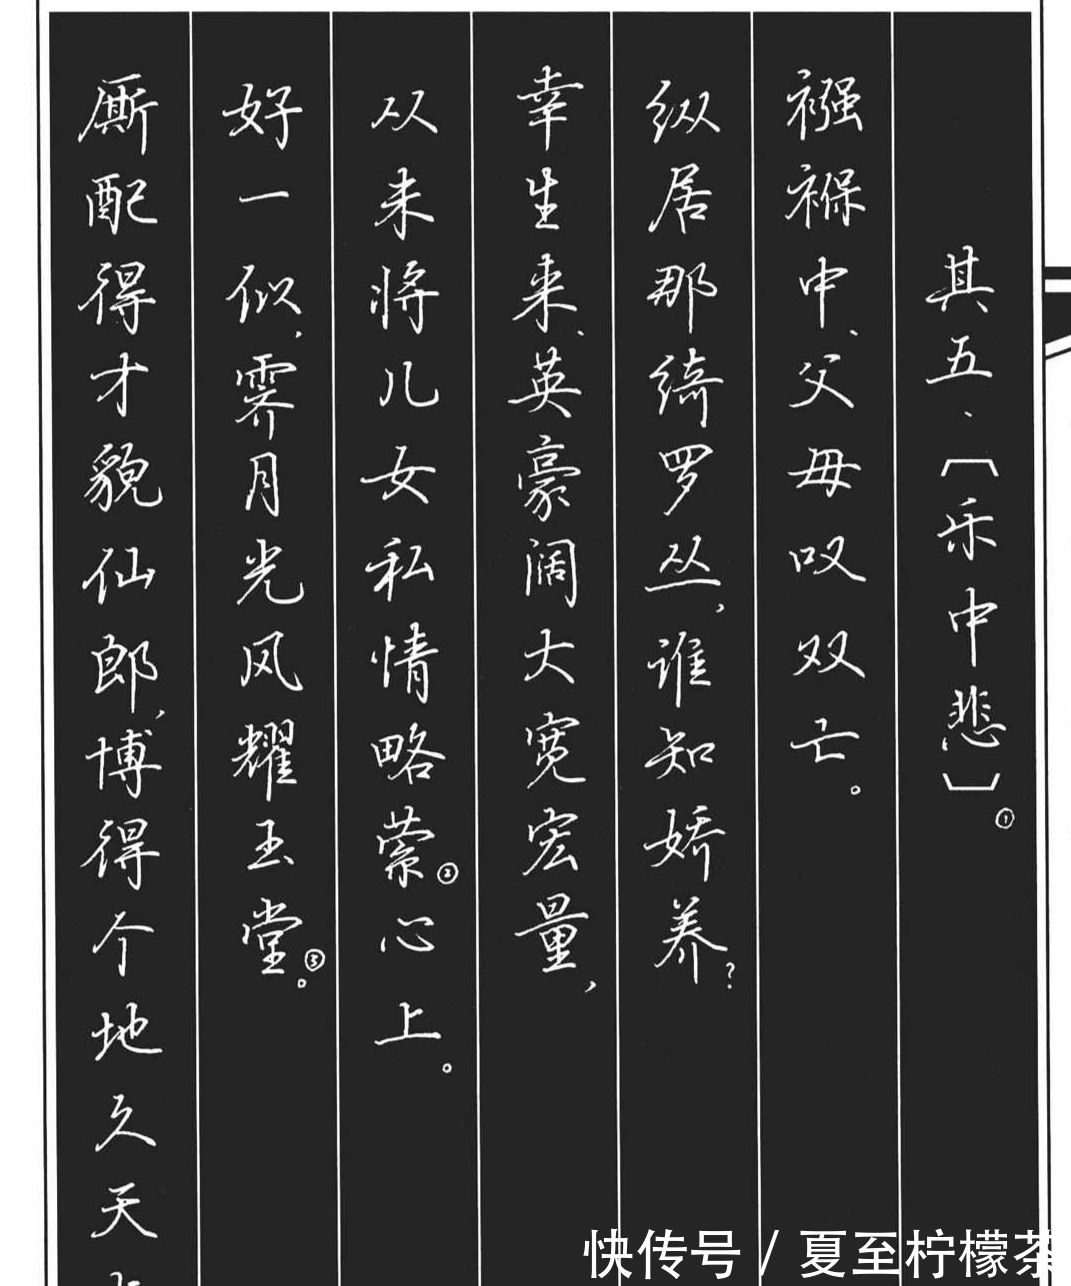 其五、〔乐中悲〕①
襁褓中、父母叹双亡。
纵居那绮罗丛，谁知娇养？
幸生来、英豪阔大宽宏量，
从未将儿女私情略萦②心上。
好一似，霁月光风耀玉堂③。
厮配得才貌仙郎，博得个地久天
快传号 / 夏至柠檬茶